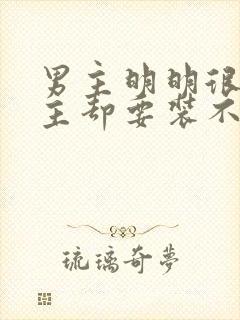 男主明明很
主却要装不
琉璃奇夢